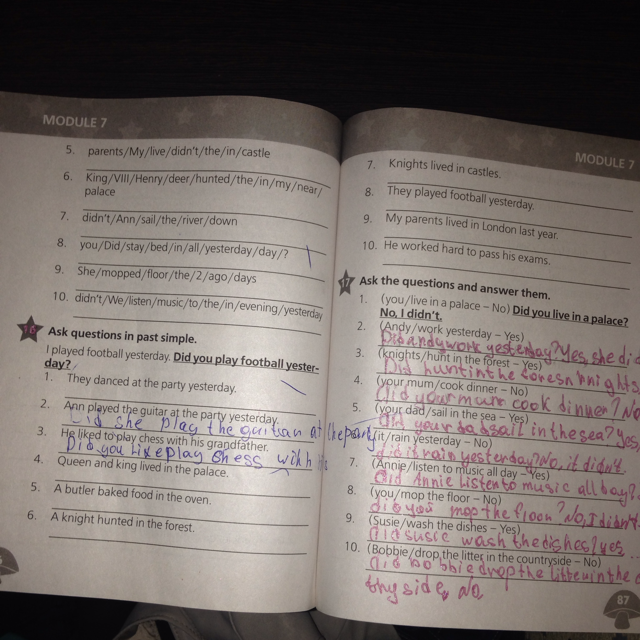 MODULE 7
5. parents/My/live/didn't/the/in/castle
6. King/VIII/Henry/deer/hunted/the/in/my/near/
palace
7. didn't/Ann/sail/the/river/down
8. you/Did/stay/bed/in/all/yesterday/day/?
9. She/mopped/floor/the/2/ago/days
10. didn't/We/listen/music/to/the/in/evening/yesterday
16 Ask questions in past simple.
I played football yesterday. Did you play football yester-
day?
1. They danced at the party yesterday.
2. Ann played the guitar at the party yesterday.
Did she play the guitian at the party
3. He liked to play chess with his grandfather.
Did you like play shess with his
4. Queen and king lived in the palace.
5. A butler baked food in the oven.
6. A knight hunted in the forest.
MODULE 7
7. Knights lived in castles.
8. They played football yesterday.
9. My parents lived in London last year.
10. He worked hard to pass his exams.
17 Ask the questions and answer them.
1. (you/live in a palace – No) Did you live in a palace?
No, I didn't.
2. (Andy/work yesterday – Yes)
Did andy work yesterday? Yes, she did
3. (knights/hunt in the forest – Yes)
Did hunt in the knights
4. (your mum/cook dinner – No)
Did your mum cook dinner? No
5. (your dad/sail in the sea – Yes)
Did your dad sail in the sea? Yes,
(it/rain yesterday – No)
did it rain yesterday? No, it didn't.
7. (Annie/listen to music all day – Yes)
did Annie listen to music all bay?
8. (you/mop the floor – No)
did you mop the floor? No, I didn't
9. (Susie/wash the dishes – Yes)
did susie wash the dishes? yes
10. (Bobbie/drop the litter in the countryside – No)
did bobbie drop the in the
side, No
87